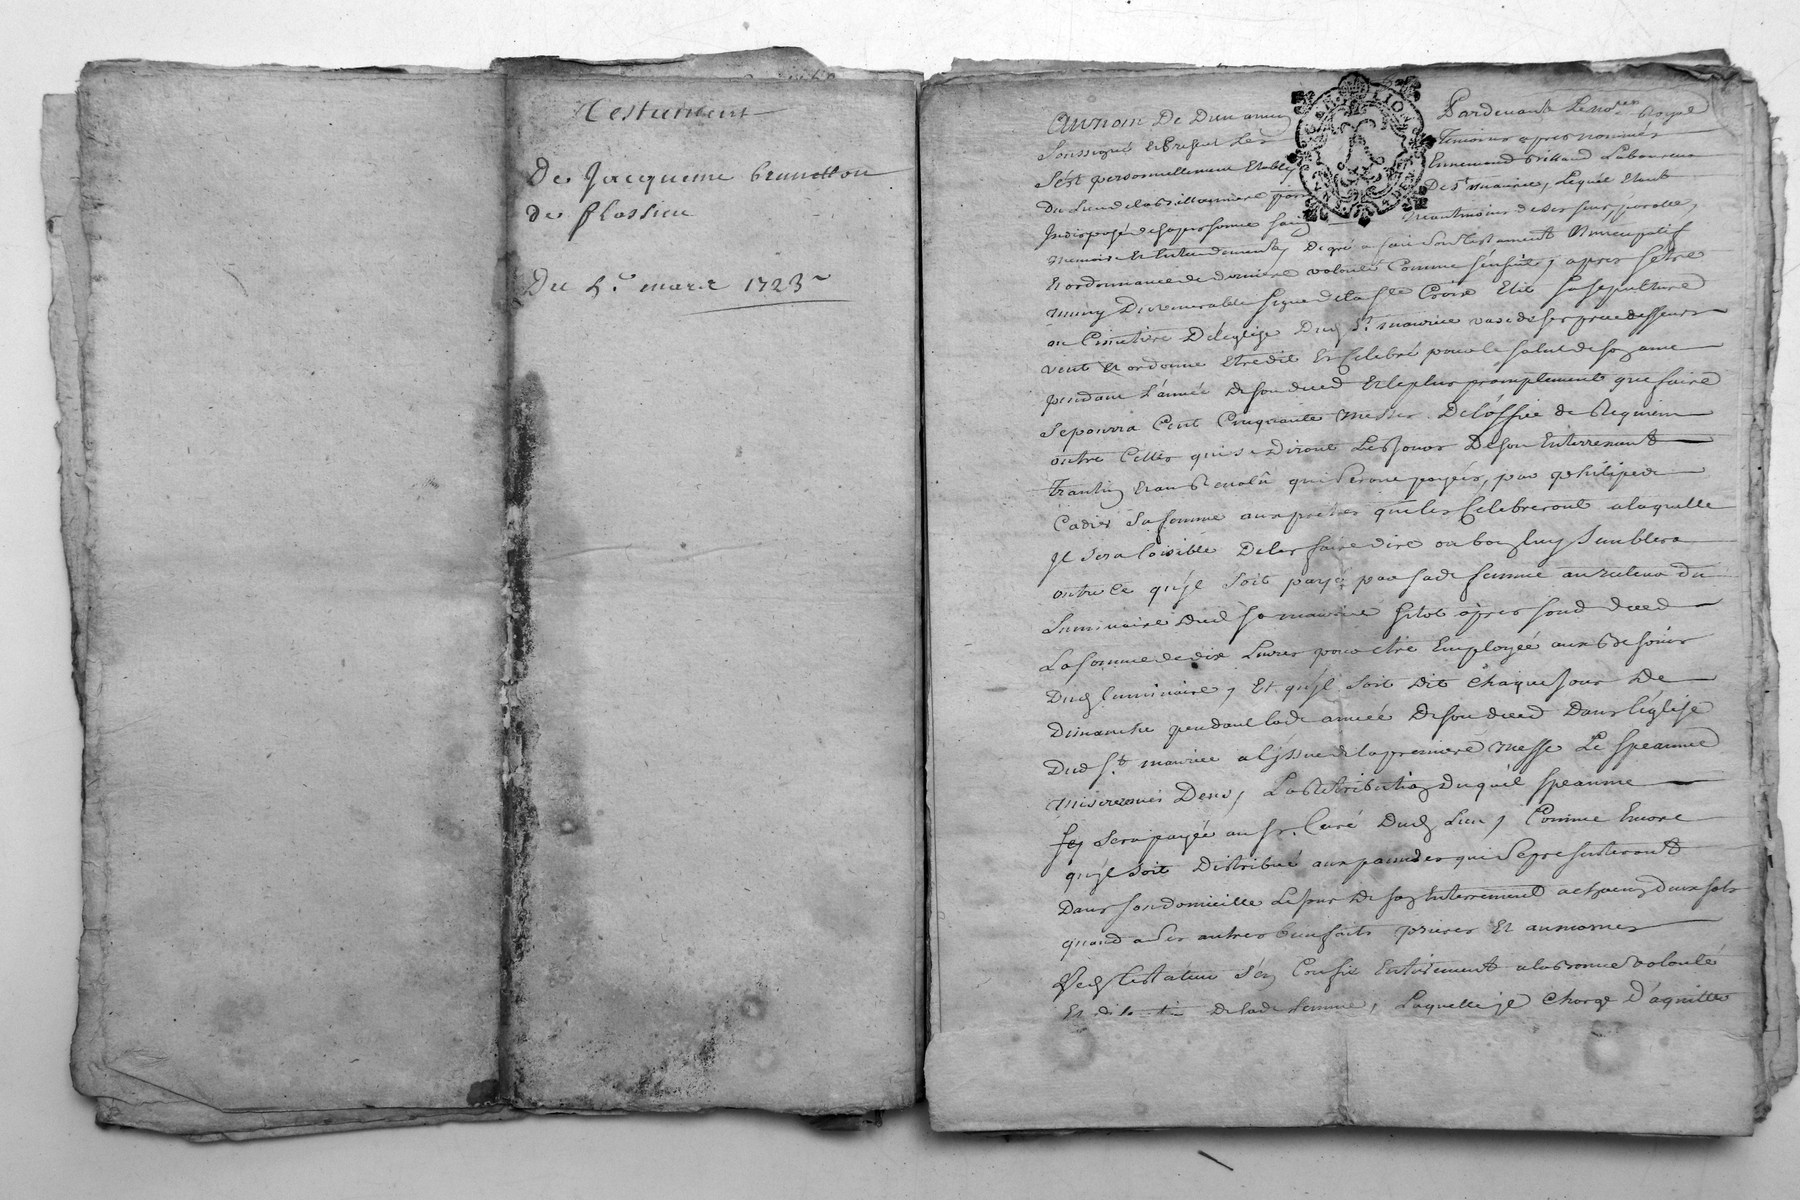 Testament
De Jacqueme brunetton
de flassieu
Du 4e. mars 1723
Au nom De Dieu amen Pardevant Le nore. Royal
Soussigné et present Les Temoins apres nommés
s'est personnellement Etably Ennemond Brilland Laboureur
Du Lieu de la Brillonniere par De St maurice, Lequel Etant
Indisposé de sa personne sain neantmoins de ses sens, parolle,
memoire Et Entendement, De gré a fait son testament Nuncupatif
Et ordonnance de derniere volonté Comme s'ensuit, apres s'etre
muny Du venerable signe de la ste Croix Elit sa sepulture
au Cimetiere De l'eglise Dud St maurice vase de ses predessesseurs
veut Et ordonne Etre dit Et Celebré pour le salut de son ame
pendant L'année de son deced Et le plus promptement que faire
se pourra Cent Cinquante messes De l'office de Requiem
outre Celles qui se diront Les Jours De son Enterrement
Trantin Et au Bout de l'an qui seront payés, par philipe
Cadier sa femme aux pretres qui les Celebreront a laquelle
Il sera loisible De les faire dire ou bon luy semblera
outre Ce qu'il soit payé par sade femme au recteur du
Luminaire Dud St maurice sitot apres sond deced
La somme de dix Livres pour etre Employée aux Besoins
Dud Luminaire, Et qu'jl soit dit Chaque Jour De
Dimanche pendant lade année De son deced Dans l'église
Dud St. maurice a l'jssue de la premiere Messe Le speaume
miserere mei Deus, La Retribution Duquel speaume
sera payée au sr. Curé Dud Lieu, Comme Encore
qu'jl soit Distribué aux pauvres qui se presenteront
Dans son domicille Le jour De son Enterrement a chacun deux sols
quand a Ses autres bienfaits prieres Et aumones
Led testateur s'en Confie Entierement a la bonne volonté
Et De lade femme, Laquelle jl Charge D'aquitter